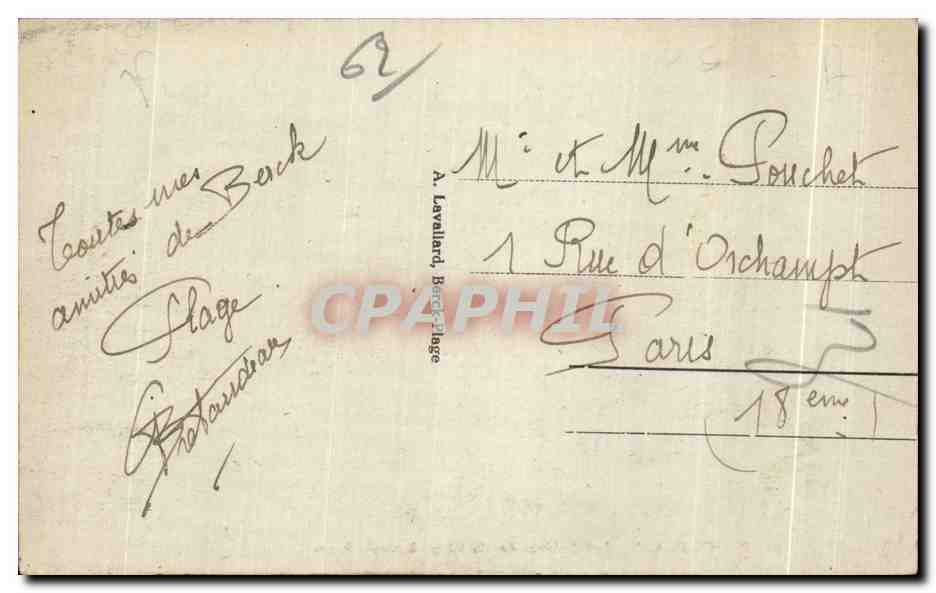 62
Toutes mes
amitiés de Berck
Plage
A. Lavallard, Berck-Plage
Mr et Mme Pouchet
1 Rue d'Orchampt
Paris
(18eme)
CPAPHIL